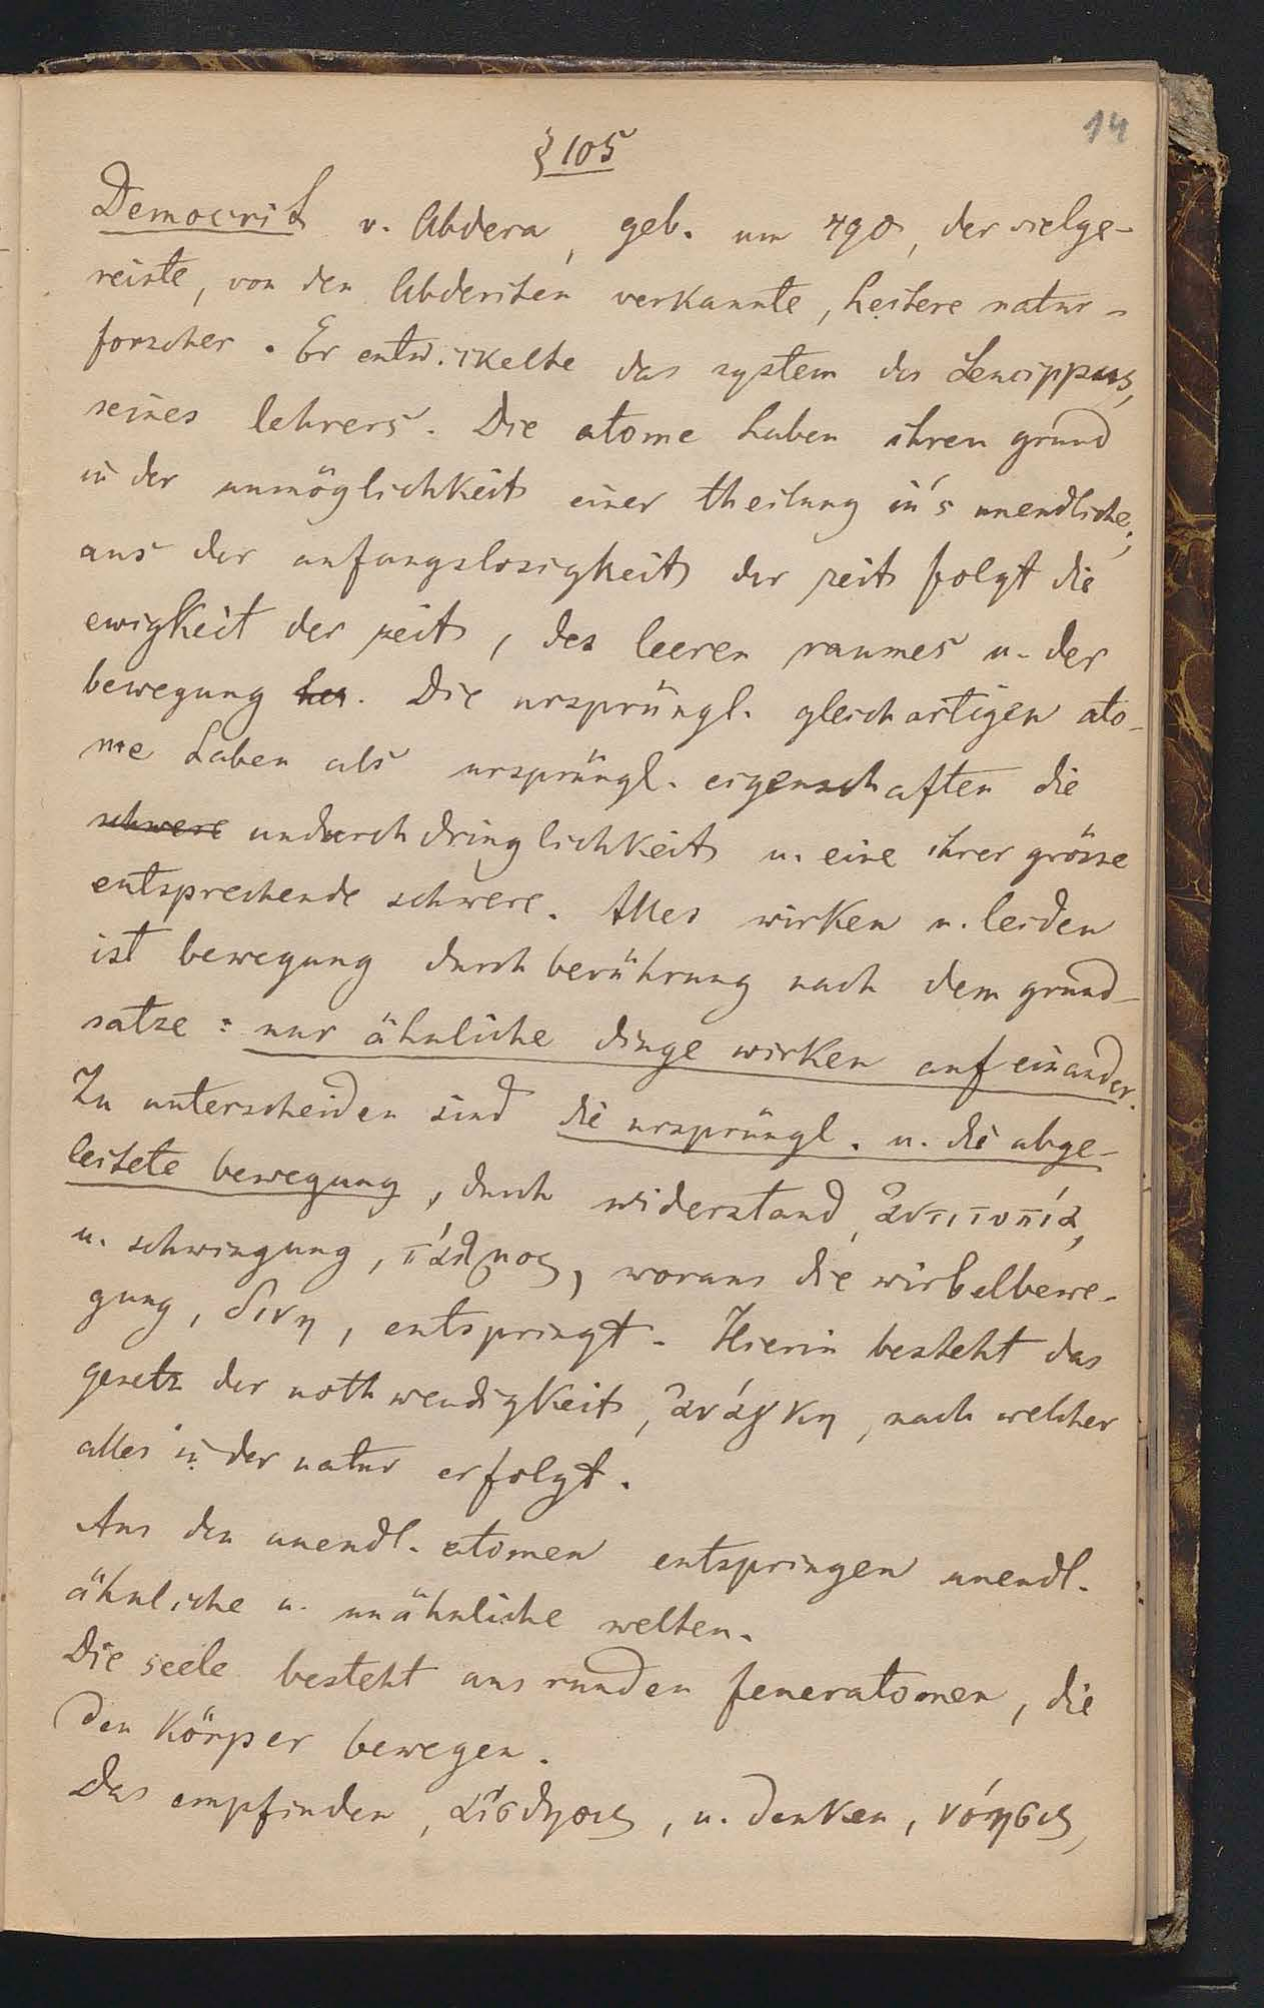 14
§ 105
Democrit v. Abdera, geb. um 490, der vielge-
reiste, von den Abderiten verkannte, heitere natur-
forscher. Er entwickelte das system des Leucippus,
seines lehrers. Die atome haben ihren grund
in der unmöglichkeit einer theilung in's unendliche;
aus der anfangslosigkeit der zeit folgt die
ewigkeit der zeit, des leeren raumes u. der
bewegung her. Die ursprüngl. gleichartigen ato-
me haben als ursprüngl. eigenschaften die
schwere undurchdringlichkeit u. eine ihrer grösse
entsprechende schwere. Alles wirken u. leiden
ist bewegung durch berührung nach dem grund-
satze: nur ähnliche dinge wirken auf einander.
Zu unterscheiden sind die ursprüngl. u. die abge-
leitete bewegung, durch widerstand, ἀντιτυπία,
u. schwingung, πάλμος, woraus die wirbelbewe-
gung, δινη, entspringt. Hierin besteht das
gesetz der nothwendigkeit, ἀνάγκη, nach welcher
alles in der natur erfolgt.
Aus den unendl. atomen entspringen unendl.
ähnliche u. unähnliche welten.
Die seele besteht aus runden feueratomen, die
den Körper bewegen.
Das empfinden, αἴσθησις, u. denken, νόησις,